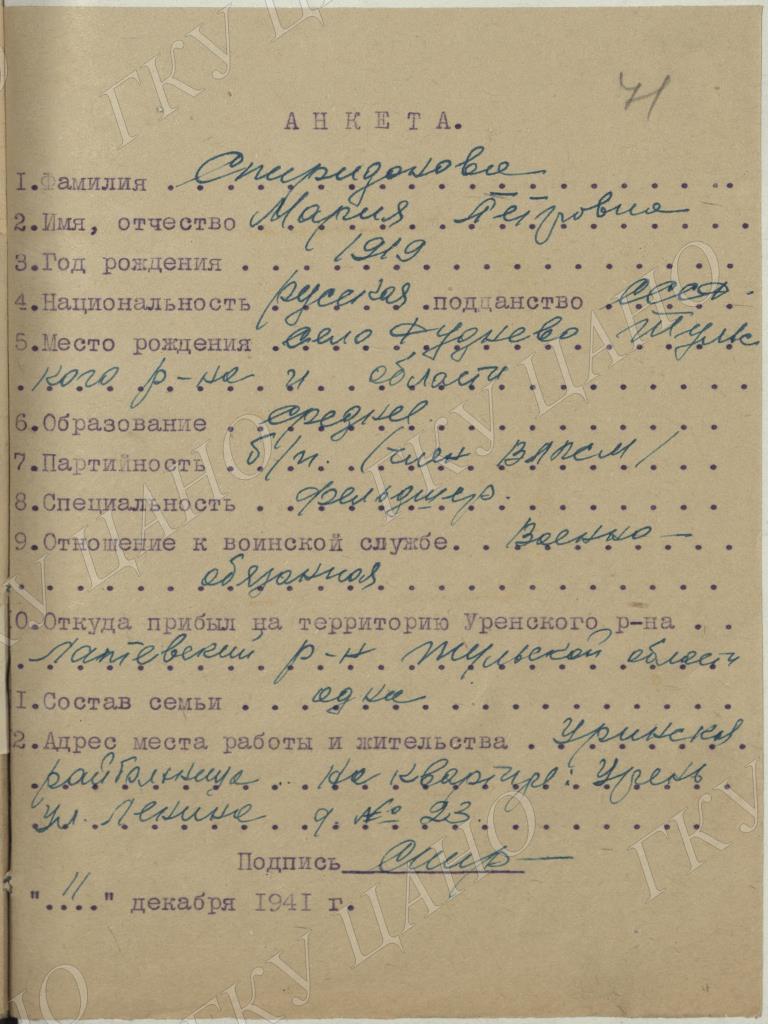 71
АНКЕТА.
1. Фамилия Спиридонова
2. Имя, отчество Мария Петровна
3. Год рождения 1919
4. Национальность русская подданство СССР.
5. Место рождения село Фуднево Туль
ского р-на и области
6. Образование среднее
7. Партийность б/п. (член ВЛКСМ)
8. Специальность фельдшер.
9. Отношение к воинской службе. Военно-
обязанная
0. Откуда прибыл на территорию Уренского р-на
Лаптевский р-н Тульской области
1. Состав семьи одна
2. Адрес места работы и жительства Уринская
райбольница на квартире: Урень
ул. Ленина д. № 23.
Подпись Спир
"11" декабря 1941 г.
ГКУ ЦАНО